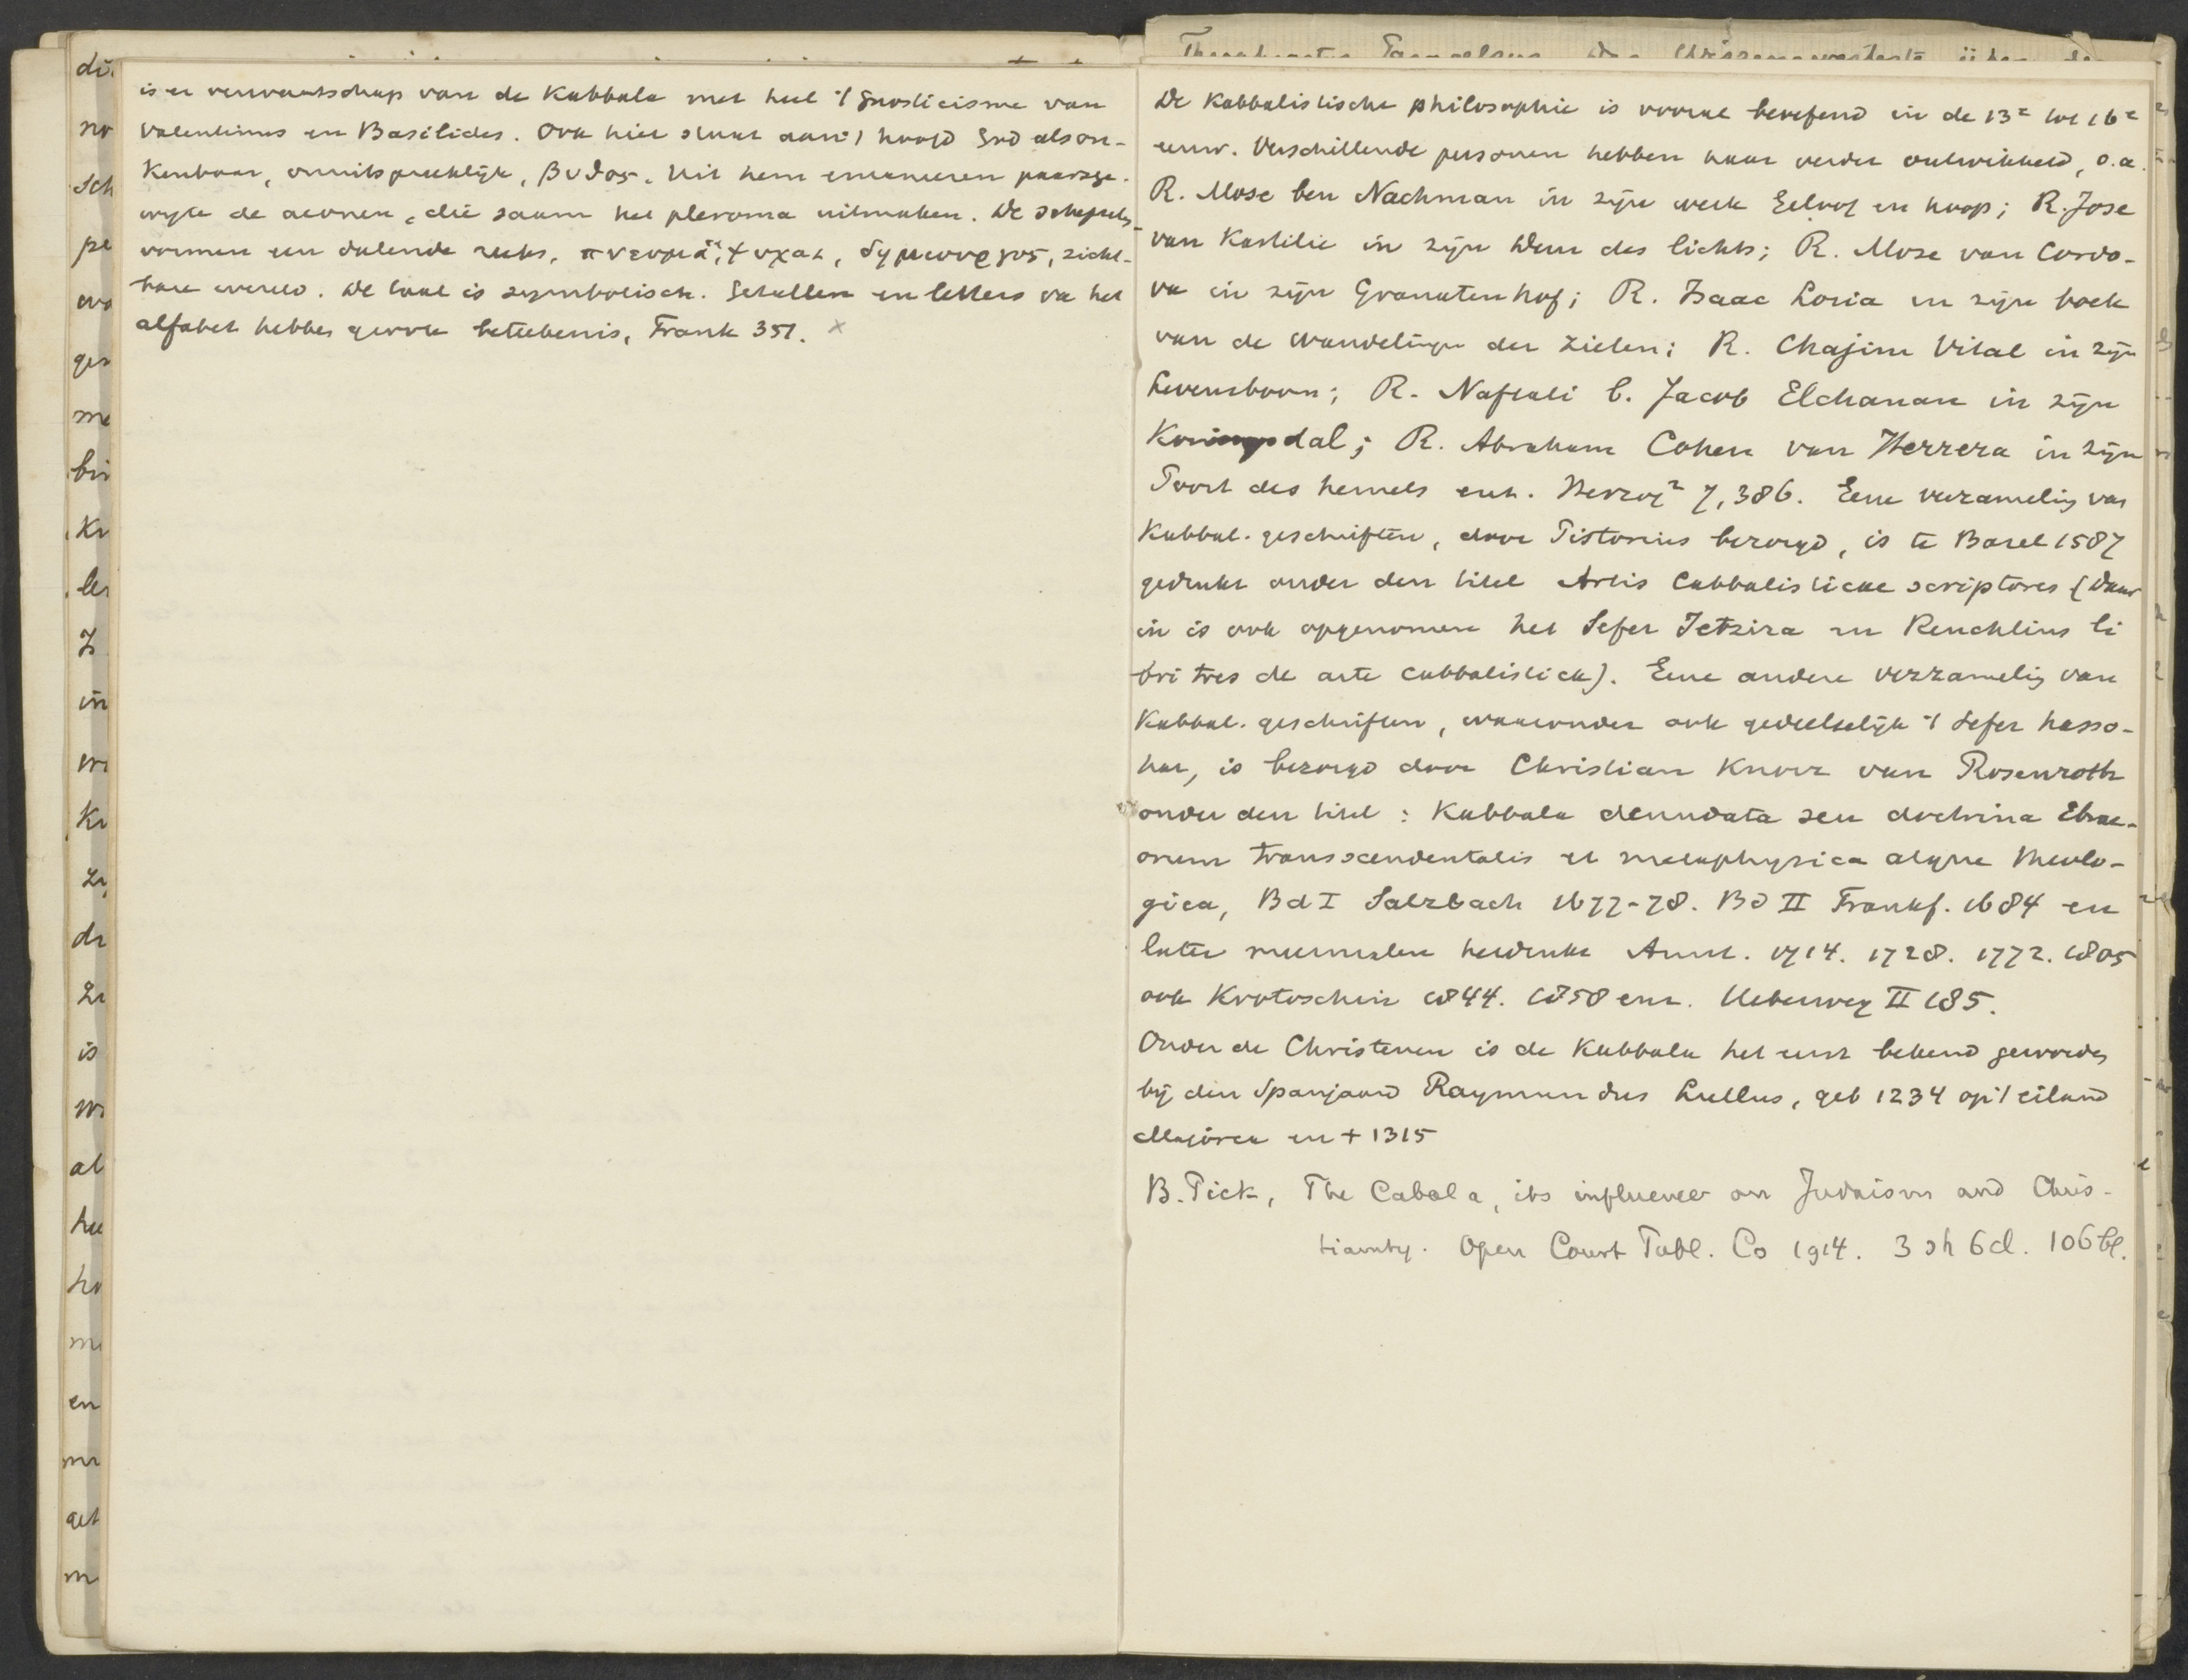 is er verwantschap van de Kabbala met heel 't Gnosticisme van
Valentinus en Basilides. Ook hier staat aan 't hoofd God als on-
kenbaar, onuitspreeklijk, βυθος. Uit hem emaneren paarsge-
wyze de aeonen, die saam het pleroma uitmaken. De schepselen
vormen een dalende reeks, πνευμα, ψυχαι, δημιουργος, zicht-
bare wereld. De taal is symbolisch. Getallen en letters va het
alfabet hebben groote beteekenis, Frank 351. x
De Kabbalistische philosophie is vooral beoefend in de 13e tot 16e
eeuw. Verschillende personen hebben haar verder ontwikkeld, o.a.
R. Mose ben Nachman in zijn werk Geloof en hoop; R. Jose
van Kastilie in zijn Deur des lichts; R. Mose van Cordo-
va in zijn Granatenhof; R. Isaac Loria in zijn boek
van de wandelingen der zielen; R. Chajim Vital in zijn
Levensboom; R. Naftali b. Jacob Elchanan in zijn
Koningsdal; R. Abraham Cohen van Herrera in zijn
Poort des hemels enz. Herzog² 7, 386. Eene verzameling van
Kabbal. geschriften, door Pistorius bezorgd, is te Basel 1587
gedrukt onder den titel Artis Cabbalisticae scriptores (daar
in is ook opgenomen het Sefer Jetzira en Reuchlins li
bri tres de arte cabbalistica). Eene andere verzameling van
Kabbal. geschriften, waaronder ook gedeeltelijk 't Sefer hasso-
har, is bezorgd door Christian Knorr van Rosenroth
onder den titel: Kabbala denudata seu doctrina Ebrae-
orum transscendentalis et metaphysica atque theolo-
gica, Bd I Salzbach 1677-78. Bd II Frankf. 1684 en
later meermalen herdrukt Amst. 1714. 1728. 1772. 1805
ook Krotoschin 1844. 1858 enz. Ueberweg II 185.
Onder de Christenen is de Kabbala het eerst bekend geworden
bij den Spanjaard Raymundus Lullus, geb 1234 op 't eiland
Majorca en + 1315
B. Pick, The Cabala, its influence on Judaism and Chris-
tianity. Open Court Publ. Co 1914. 3 sh 6d. 106 bl.